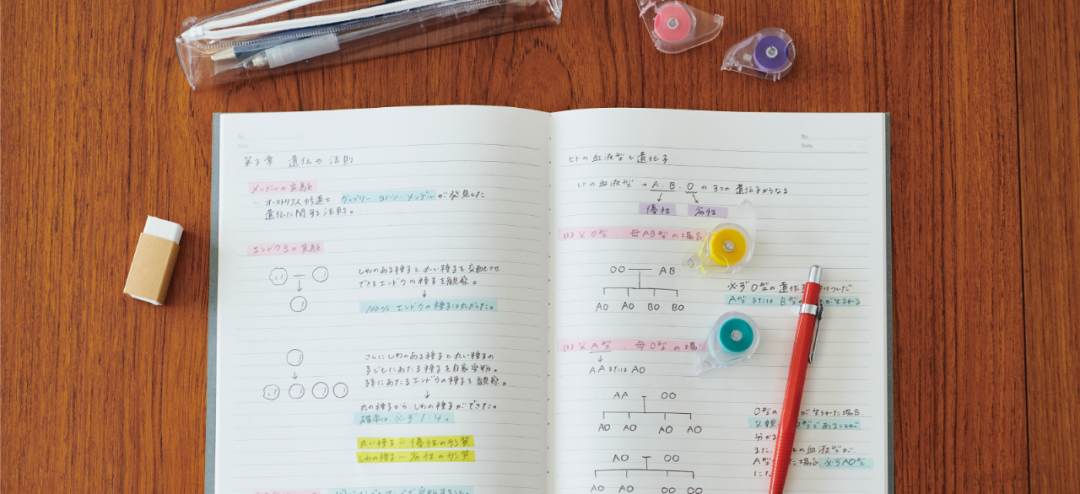 第3章 遺伝の法則
メンデルの実験
オーストリア人修道士 グレゴリー・ヨハン・メンデルが発見した
遺伝に関する法則。
エンドウ豆の実験
しわのある種子と丸い種子を交配させ
できるエンドウの種子を観察。
↓
100% エンドウの種子は丸だった。
さらにしわのある種子と丸い種子の
子どもにあたる種子を自家受粉。
孫にあたるエンドウの種子を観察。
↓
丸の種子から、しわの種子ができた。
確率は、必ず1:4。
丸い種子 = 優性の形質
しわの種子 = 劣性の形質
No.
Date
ヒトの血液型と遺伝子
ヒトの血液型 → A、B、O の3つの遺伝子からなる
優性 劣性
(1) 父 O型 母 AB型の場合
OO AB
AO AO BO BO
必ずO型の遺伝子
A型 または B型 が生まれる
(2) 父 A型 母 O型の場
AA または AO
AA OO
AO AO AO AO
O型の が生まれた場合
父親 が
分かる
また、 の血液型が
A型 た場合 必ずAO型
に
AO OO
AO AO OO OO